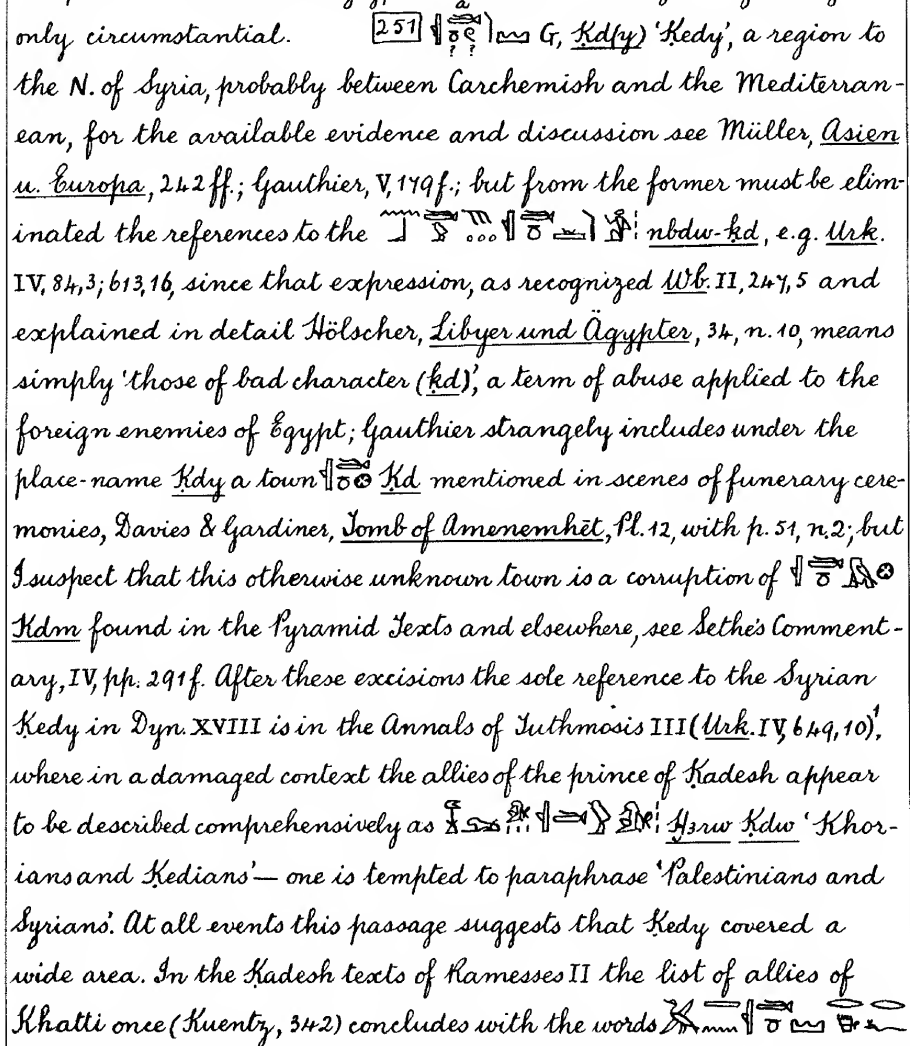 only circumstantial. 251 G, Ḳd(y) ‘Kedy’, a region to
the N. of Syria, probably between Carchemish and the Mediterran-
ean, for the available evidence and discussion see Müller, Asien
u. Europa, 242 ff.; Gauthier, V, 179 f.; but from the former must be elim-
inated the references to the nbdw-ḳd, e.g. Urk.
IV, 84,3; 613,16, since that expression, as recognized Wb. II, 247,5 and
explained in detail Hölscher, Libyer und Ägypter, 34, n. 10, means
simply ‘those of bad character (ḳd)’, a term of abuse applied to the
foreign enemies of Egypt; Gauthier strangely includes under the
place-name Ḳdy a town Ḳd mentioned in scenes of funerary cere-
monies, Davies & Gardiner, Tomb of Amenemhēt, Pl. 12, with p. 51, n. 2; but
I suspect that this otherwise unknown town is a corruption of
Ḳdm found in the Pyramid Texts and elsewhere, see Sethe's Comment-
ary, IV, pp. 291 f. After these excisions the sole reference to the Syrian
Kedy in Dyn. XVIII is in the Annals of Tuthmosis III (Urk. IV, 649, 10)¹,
where in a damaged context the allies of the prince of Ḳadesh appear
to be described comprehensively as Ḫ3rw Ḳdw ‘Khor-
ians and Ḳedians’ — one is tempted to paraphrase ‘Palestinians and
Syrians’. At all events this passage suggests that Ḳedy covered a
wide area. In the Ḳadesh texts of Ramesses II the list of allies of
Khatti once (Kuentz, 342) concludes with the words